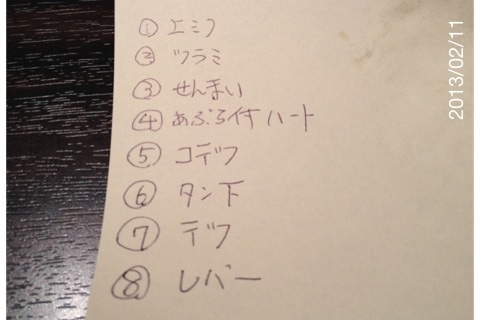 ① エミフ
② ツラミ
③ せんまい
④ あぶら付ハート
⑤ コデフ
⑥ タン下
⑦ デフ
⑧ レバー
2013/02/11